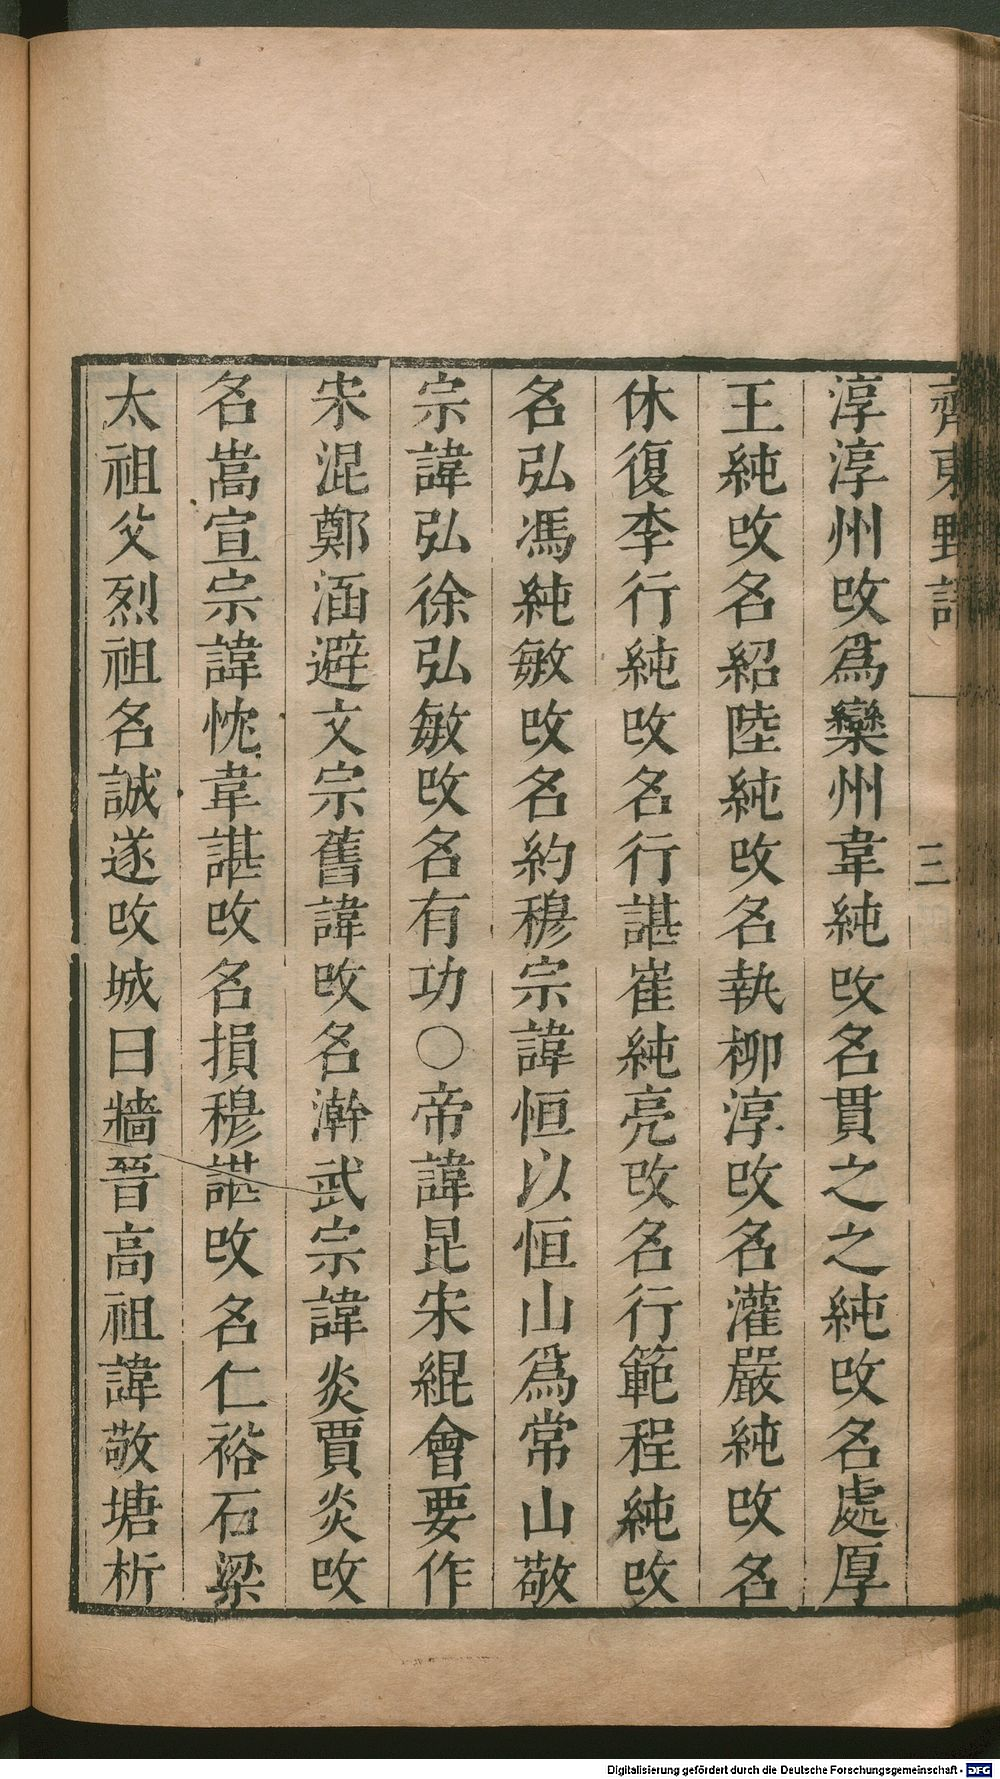 齊東野語
三
淳淳州改爲欒州韋純改名貫之之純改名處厚
王純改名紹陸純改名執柳淳改名灌嚴純改名
休復李行純改名行諶崔純亮改名行範程純改
名弘馮純敏改名約穆宗諱恒以恒山爲常山敬
宗諱弘徐弘敏改名有功○帝諱昆宋緄會要作
宋混鄭涵避文宗舊諱改名澣武宗諱炎賈炎改
名嵩宣宗諱忱韋諶改名損穆諶改名仁裕石梁
太祖父烈祖名誠遂改城曰牆晉高祖諱敬塘析
Digitalisierung gefördert durch die Deutsche Forschungsgemeinschaft - DFG